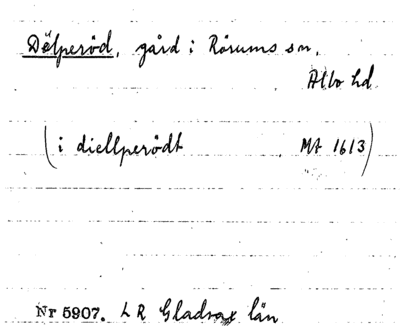 Dälperöd, gård i Rörums sn,
Albo hd
(i diellperödt MA 1613)
Nr 5907. LR Gladsax län